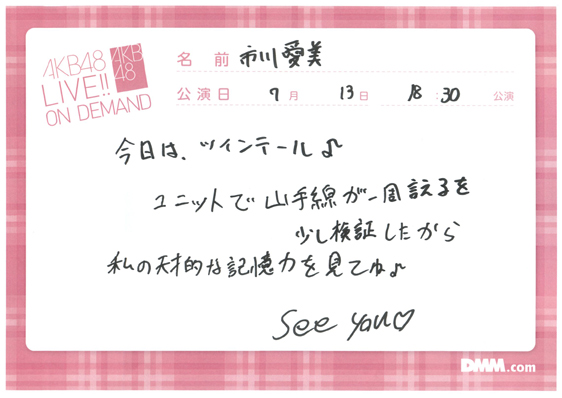 AKB48
LIVE!!
ON DEMAND
AKB
48
名前 市川愛美
公演日 9月 13日 18:30 公演
今日は、ツインテール♪
ユニットで山手線が一周言えるを
少し検証したから
私の天才的な記憶力を見てね♪
See you♡
DMM.com